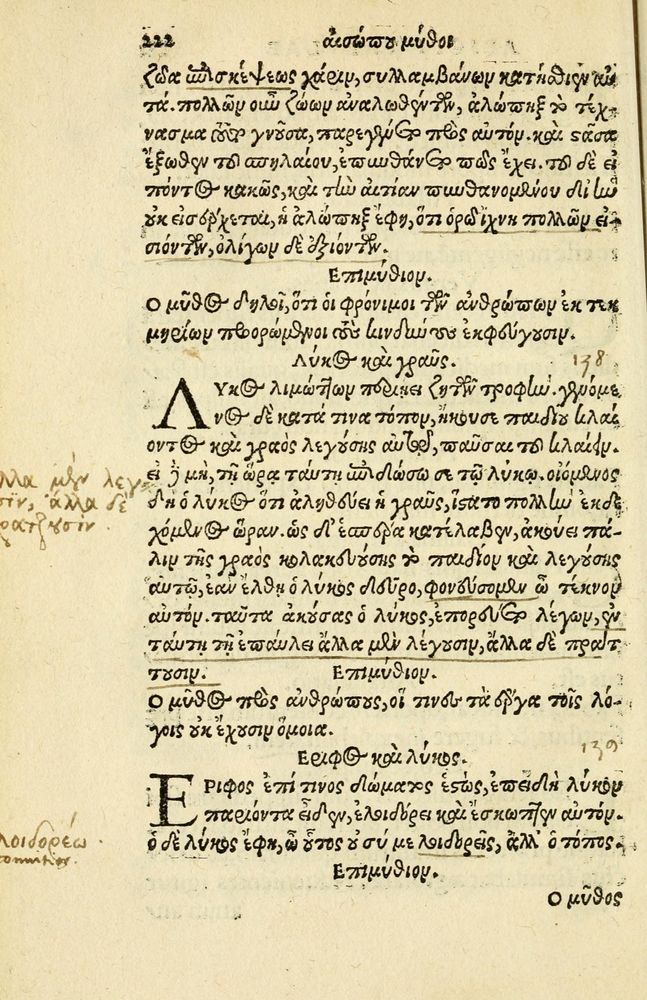 222 αἰσώπου μῦθοι
ζῶα ἐπισκέψεως χάριν, συλλαμβάνων κατήσθιεν αὐ
τά. πολλῶν οὖν ζώων ἀναλωθέντων, ἀλώπηξ τὸ τέχ-
νασμα αὐτοῦ γνοῦσα, παρεγένετο πρὸς αὐτόν. καὶ στᾶσα
ἔξωθεν τοῦ σπηλαίου, ἐπυνθάνετο πῶς ἔχει. τοῦ δὲ εἰ
πόντος κακῶς, καὶ τὴν αἰτίαν πυνθανομένου δι' ἣν
οὐκ εἰσέρχεται, ἡ ἀλώπηξ ἔφη, ὅτι ὁρῶ ἴχνη πολλῶν εἰ-
σιόντων, ὀλίγων δὲ ἐξιόντων.
Επιμύθιον.
Ο μῦθος δηλοῖ, ὅτι οἱ φρόνιμοι τῶν ἀνθρώπων ἐκ τεκ
μηρίων προορώμενοι τοὺς κινδύνους ἐκφεύγουσιν.
Λύκος καὶ γραῦς. 138
ΛΥΚος λιμώττων περιῄει ζητῶν τροφήν. γενόμε
νος δὲ κατά τινα τόπον, ἤκουσε παιδίου κλαί
οντος καὶ γραὸς λεγούσης αὐτῷ, παῦσαι τοῦ κλαίειν.
εἰ δὲ μὴ, τῇ ὥρᾳ ταύτῃ ἐπιδώσω σε τῷ λύκῳ. οἰόμενος
δὴ ὁ λύκος ὅτι ἀληθεύει ἡ γραῦς, ἵστατο πολλὴν ἐκδε
χόμενος ὥραν. ὡς δ' ἑσπέρα κατέλαβεν, ἀκούει πά-
λιν τῆς γραὸς κολακευούσης τὸ παιδίον καὶ λεγούσης
αὐτῷ, ἐὰν ἔλθῃ ὁ λύκος δεῦρο, φονεύσομεν ὦ τέκνον
αὐτόν. ταῦτα ἀκούσας ὁ λύκος, ἐπορεύετο λέγων, ἐν
ταύτῃ τῇ ἐπαύλει ἄλλα μὲν λέγουσιν, ἄλλα δὲ πράτ
τουσιν. Επιμύθιον.
Ο μῦθος πρὸς ἀνθρώπους, οἵ τινες τὰ ἔργα τοῖς λό-
γοις οὐκ ἔχουσιν ὅμοια.
Εριφος καὶ λύκος. 139
ΕΡΙΦΟΣ ἐπί τινος δώματος ἑστὼς, ἐπειδὴ λύκον
παριόντα εἶδεν, ἐλοιδόρει καὶ ἔσκωπτεν αὐτόν.
ὁ δὲ λύκος ἔφη, ὦ οὗτος οὐ σύ με λοιδορεῖς, ἀλλ' ὁ τόπος.
Επιμύθιον.
Ο μῦθος
λλα μὲν λεγ
σιν, ἄλλα δὲ
ρατζουσιν.
λοιδορέω.